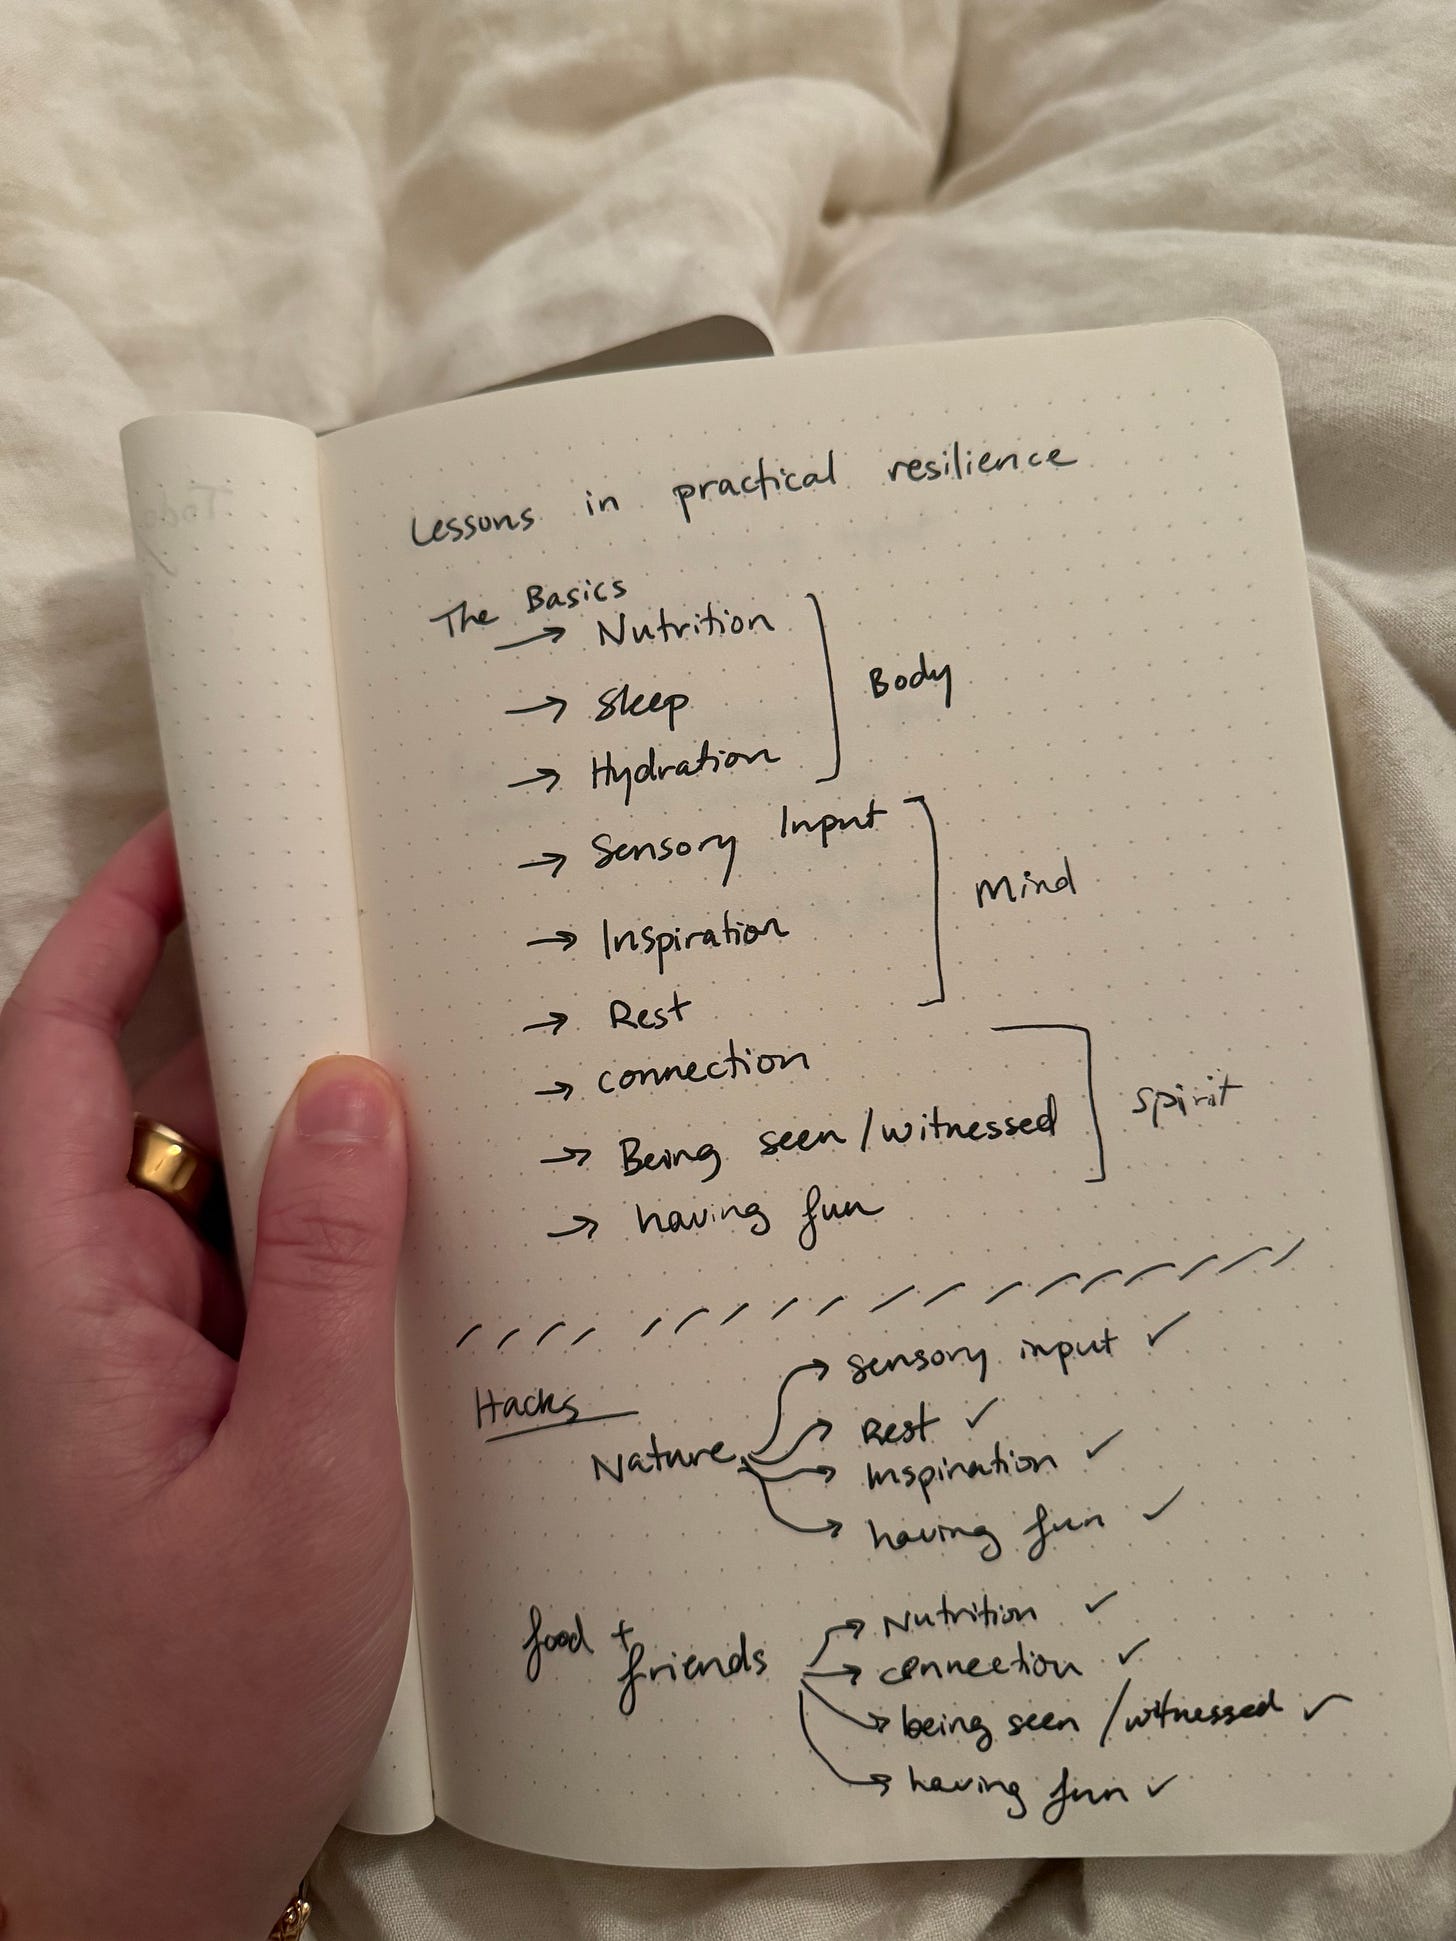 Lessons in practical resilience
The Basics
→ Nutrition
→ Sleep
Body
→ Hydration
→ Sensory Input
Mind
→ Inspiration
→ Rest
→ connection
Spirit
→ Being seen/witnessed
→ having fun
Hacks
Nature
→ sensory input ✓
→ Rest ✓
→ Inspiration ✓
→ having fun ✓
food +
friends
→ Nutrition ✓
→ connection ✓
→ being seen/witnessed ✓
→ having fun ✓